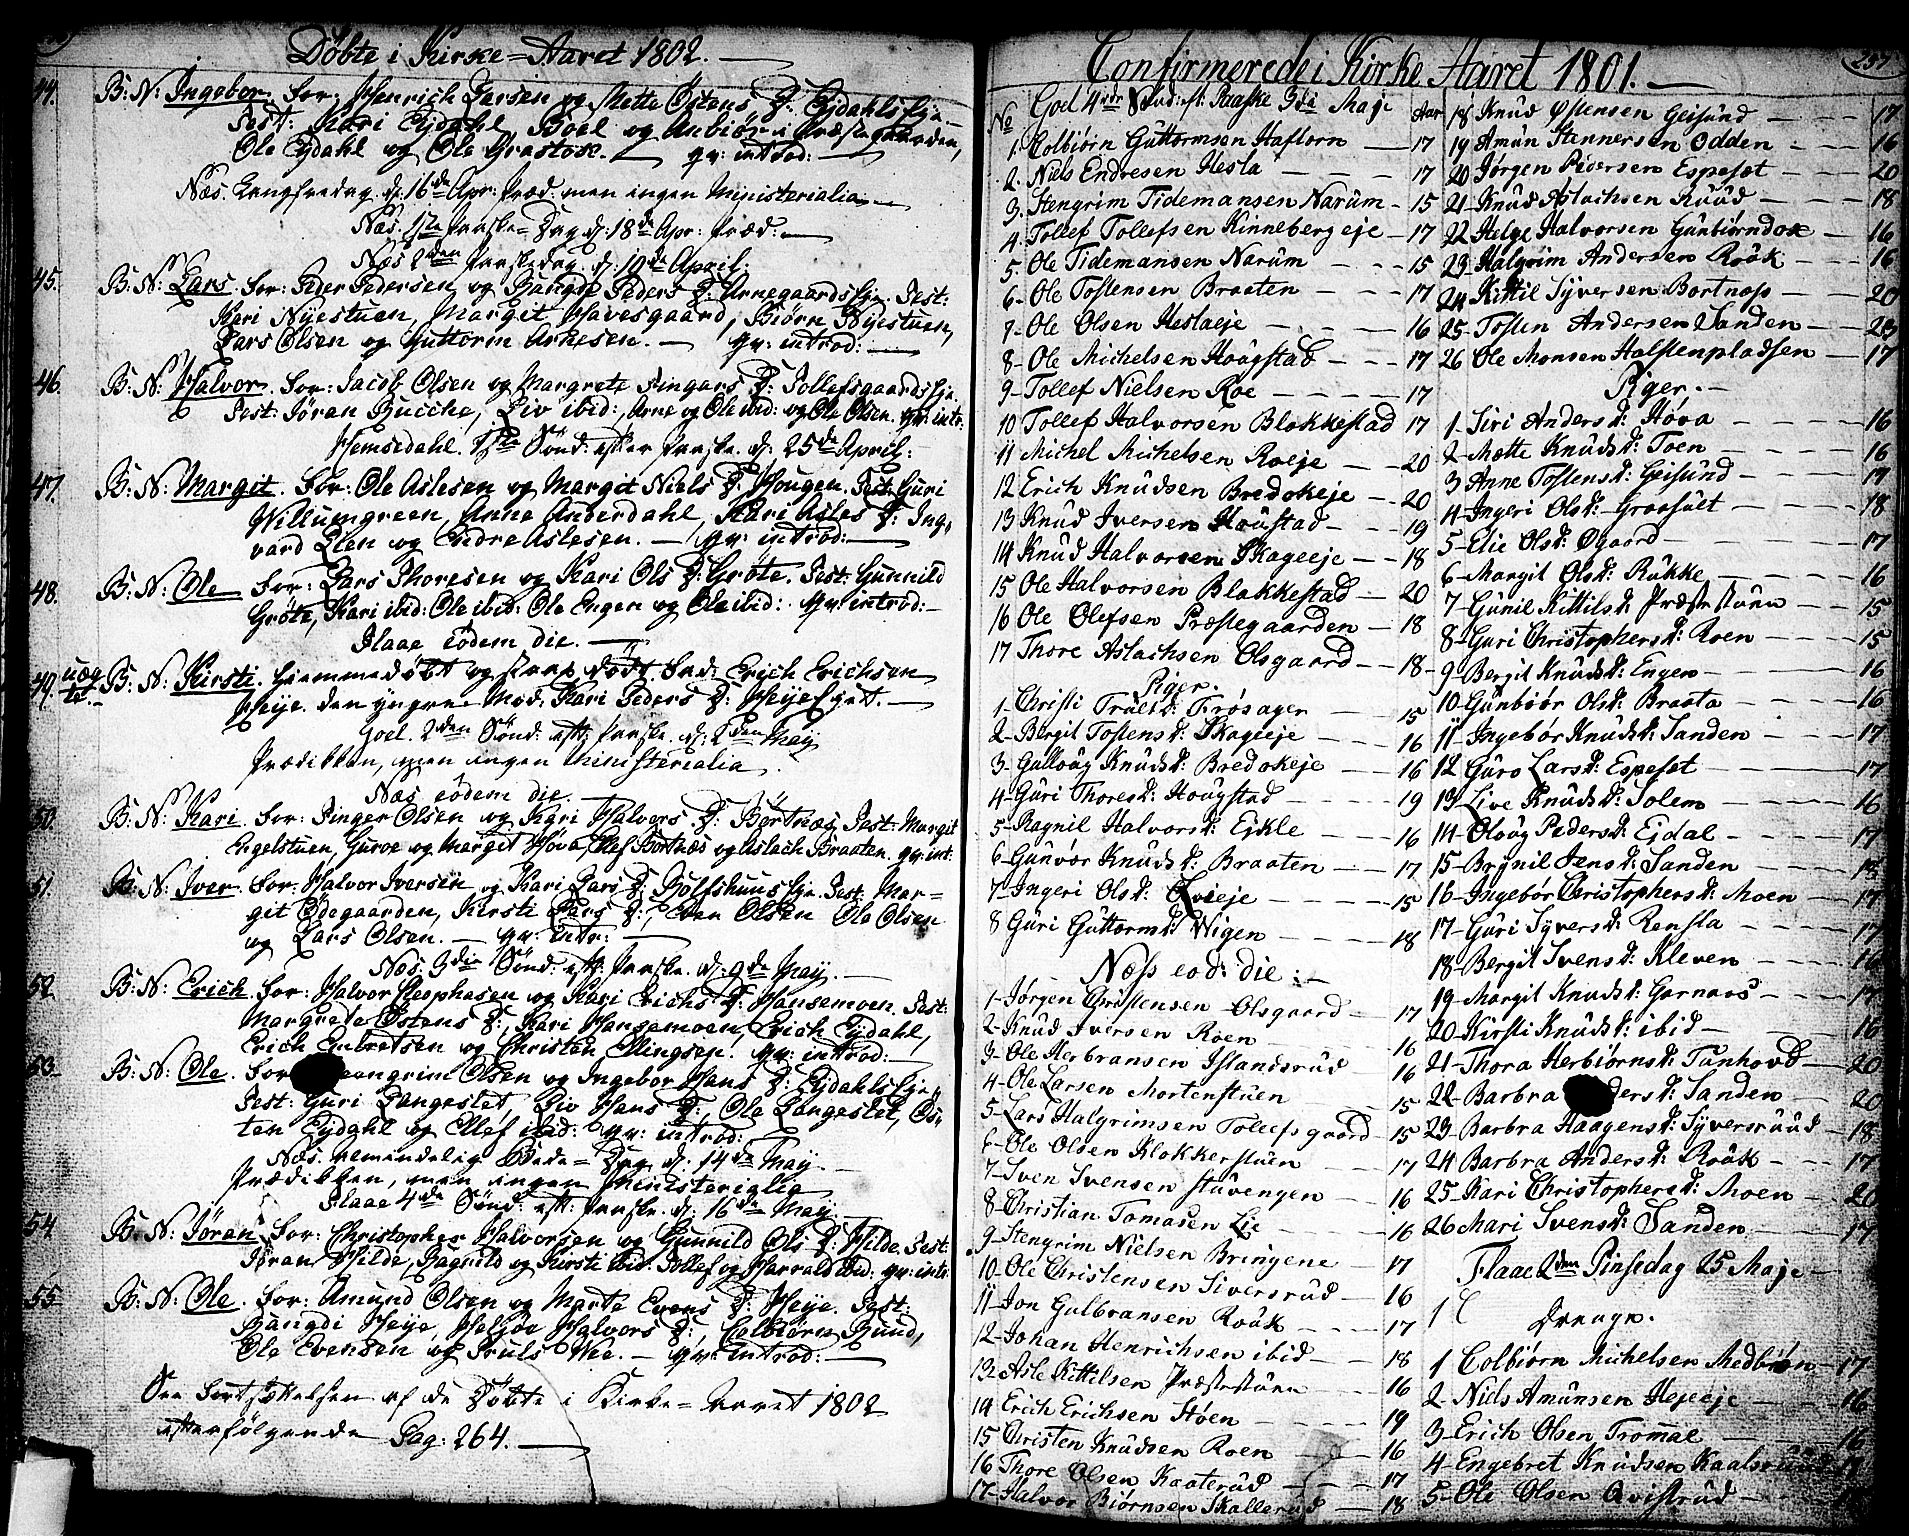 Döbte i Kirke=Aaret 1802.
44. B: N: Ingebor. For: Henrich Larsen og Mette Östens D: Eydahls Eje.
Test: Kari Eydahl, Boel og Anbiör i Præstegaarden,
Ole Eydahl og Ole Grastok. qv: introd:
Næs. Langfredag d: 16de Apr: Præd: men ingen Ministerialia
Næs. 1ste Paaske=Dag d: 18de Apr: Præd:
Næs 2den Paaskedag d: 19de April.
45. B: N: Lars. For: Peder Pedersen og Bangde Peders D: Arnegaards Eje. Test:
Kari Nyestuen, Margit Havesgaard, Biörn Nyestuen,
Lars Olsen og Guttorm Arnesen. qv: introd:
46. B: N: Halvor. For: Jacob Olsen og Margrete Fingars D: Tollefsgaards Eje.
Test: Jöran Bucche, Liv ibid: Arne og Ole ibid: og Ole Olsen. qv: intr.
Hemsedahl. 1ste Sönd: efter Paaske. d: 25de April:
47. B: N: Margit. For: Ole Aslesen og Margit Niels D: Hougen. Test: Guri
Willumgreen, Anne Anderdahl, Kari Asles D: Ing,
vard Elen og Endre Aslesen. qv: introd:
48. B: N: Ole For: Lars Thoresen og Kari Ols D: Gröte. Test: Gunnild
Gröte, Kari ibid: Ole ibid: Ole Engen og Ole ibid: qv: introd:
Flaae eodem die.
49. uægte. B: N: Kirsti. hiemmedöbt og strax död. Fad: Erich Erichsen
Heije den yngre Mod: Kari Peders D: Heije Eget.
Goel. 2den Sönd: eft: Paaske. d: 2den May
Prædikken, men ingen Ministerialia.
Næs eodem die.
50. B: N: Kari. For: Finger Olsen og Kari Halvors D: Börtnæs. Test: Margit
Engelstuen, Guroe og Margit Höva, Elef Bortnæs og Aslach Braaten. qv: int:
51. B: N: Iver. For: Halvor Iversen og Kari Lars D: Rolfshuus Eje. Test: Mar=
git Ödegaarden, Kirsti Lars D:, Even Olsen Ole Olsen
og Lars Olsen. qv: intr:
Næs. 3die Sönd: eft: Paaske. d: 9de May.
52. B: N: Erich. For: Halvor Cleophasen og Kari Erichs D: Hansemoen. Test:
Margrede Östens D:, Kari Hansemoen, Erich Eydahl,
Erich Embretsen og Christen Ellingsen. qv: introd:
53. B: N: Ole. For: engrim Olsen og Ingebor Hans D: Eydahls Eje.
Test: Guri Langestet, Liv Hans D:, Ole Langestet, Ös,
ten Eydahl og Ellef ibid: qv: introd:
Næs. Almindelig Bede=Dag d: 14de May.
Prædikken, men ingen Ministerialia
Flaae 4de Sönd: eft: Paaske. d: 16de May.
54. B: N: Jöran. For: Christopher Halvorsen og Gunnild Ols D: Hilde. Test:
Jöran Hilde, Ragnild og Kirsti ibid: Tollef og Harrald ibid: qv: intr:
55. B: N: Ole. For: Amund Olsen og Marte Evens D: Heije. Test:
Bangdi Heije, Heljöe Halvors D:, Colbiörn Rund,
Ole Evensen og Truls Wie. qv: introd:
See Fortsættelsen af de Döbte i Kirke=Aaret 1802
efterfölgende Pag: 264.
Confirmerede i Kirke Aaret 1801.
257
No Goel 4de Sönd: eft: Paaske 3die Maje Aar
1. Colbiörn Guttormsen Haftorn 17
2. Niels Endresen Hesla 17
3. Stengrim Tidemansen Narum 15
4. Tollef Tollefsen Rinnebergeje 17
5. Ole Tidemansen Narum 15
6. Ole Tostensen Braaten 17
7. Ole Olsen Heslaeje 16
8. Ole Michelsen Hougstad 17
9. Tollef Nielsen Roe 17
10 Tollef Halvorsen Blakkestad 17
11 Michel Michelsen Roeje 20
12 Erich Knudsen Bredokeje 20
13 Knud Iversen Houstad 19
14 Knud Halvorsen Skageeje 18
15 Ole Halvorsen Blakkestad 20
16 Ole Olefsen Præstegaarden 18
17 Thore Aslachsen Olsgaard 18
Piger.
1. Christi Truls D: Frösager 15
2. Bergit Tostens D: Skageeje 16
3. Gullaug Knuds D: Bredokeje 16
4. Guri Thores D: Hougstad 19
5. Ragnil Halvors D: Ejkle 16
6. Gunvor Knuds D: Braaten 17
7. Ingeri Ols D: Qvieje 15
8 Guri Guttorms D: Wigen 18
Næss eod: die:
1. Jörgen Christensen Olsgaard 17
2. Knud Iversen Roen 16
3. Ole Herbransen Islandsrud 16
4. Ole Larsen Mortenstuen 15
5. Lars Halgrimsen Tollefsgaard 15
6. Ole Olsen Klokkerstuen 17
7. Sven Svensen Stuvengen 16
8. Christian Tomasen Lie 16
9. Stengrim Nielsen Bringene 17
10. Ole Christensen Siversrud 16
11. Jon Gulbransen Rouk 17
12. Johan Henrichsen ibid 18
13. Asle Kittilsen Præstestuen 16
14 Erich Erichsen Höen 19
15 Christen Knudsen Roen 16
16 Thore Olsen Kaaterud 17
17. Halvor Biörnsen Skallerud 18
18 Knud Östensen Geisund 17
19 Amun Stennersen Odden 16
20 Jörgen Pedersen Espeset 20
21 Knud Aslachsen Ruud 18
22 Helge Halvorsen Gunbiörndok 16
23 Halgrim Andersen Rouk 16
24 Kittil Syversen Bortnæs 20
25 Tosten Andersen Sanden 23
26 Ole Monsen Halstenpladsen 17
Piger.
1. Siri Anders D: Höva 16
2 Mette Knuds D: Toen 16
3 Anne Tostens D: Geisund 17
4. Ingeri Ols D: Graasult 18
5. Elie Ols D: Ögaard 17
6. Margit Ols D: Rukke 16
7. Gunil Kittils D: Præstestuen 15
8. Guri Christophers D: Roen 15
9. Bergit Knuds D: Engen 16
10. Gunbiör Ols D: Braata 16
11 Ingebor Knuds D: Sanden 17
12 Guro Lars D: Espeset 17
13 Live Knuds D: Solem 16
14. Oloug Peders D: Ejdal 17
15. Brynil Jens D: Sanden 18
16. Ingebor Christophers D: Moen 17
17. Guri Syvers D: Rensla 17
18. Bergit Svens D: Kleven 16
19. Margit Knuds D: Garnaas 17
20 Kirsti Knuds D: ibid 16
21. Thora Herbiörns D: Tunhovd 20
22. Barbra ders D: Sanden 20
23. Barbra Haagens D: Syversruud 18
24 Barbra Anders D: Rouk 17
25. Kari Christophers D: Moen 20
26 Mari Svens D: Sanden 17
Flaae 2den Pinsedag 25 Maje
Drenge.
1 Colbiörn Michelsen Medbröen 17
2. Niels Amunsen Hejeeje 16
3. Erich Olsen Trommal 16
4. Engebret Knudsen Kaalsruud
5. Ole Olsen Qvistrud